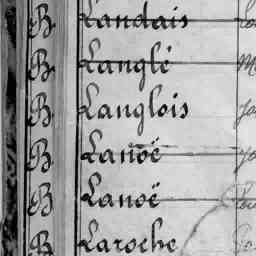 B. Landais
B. Langlé
B. Langlois
B. Lanoë
B. Lanoë
B. Laroche